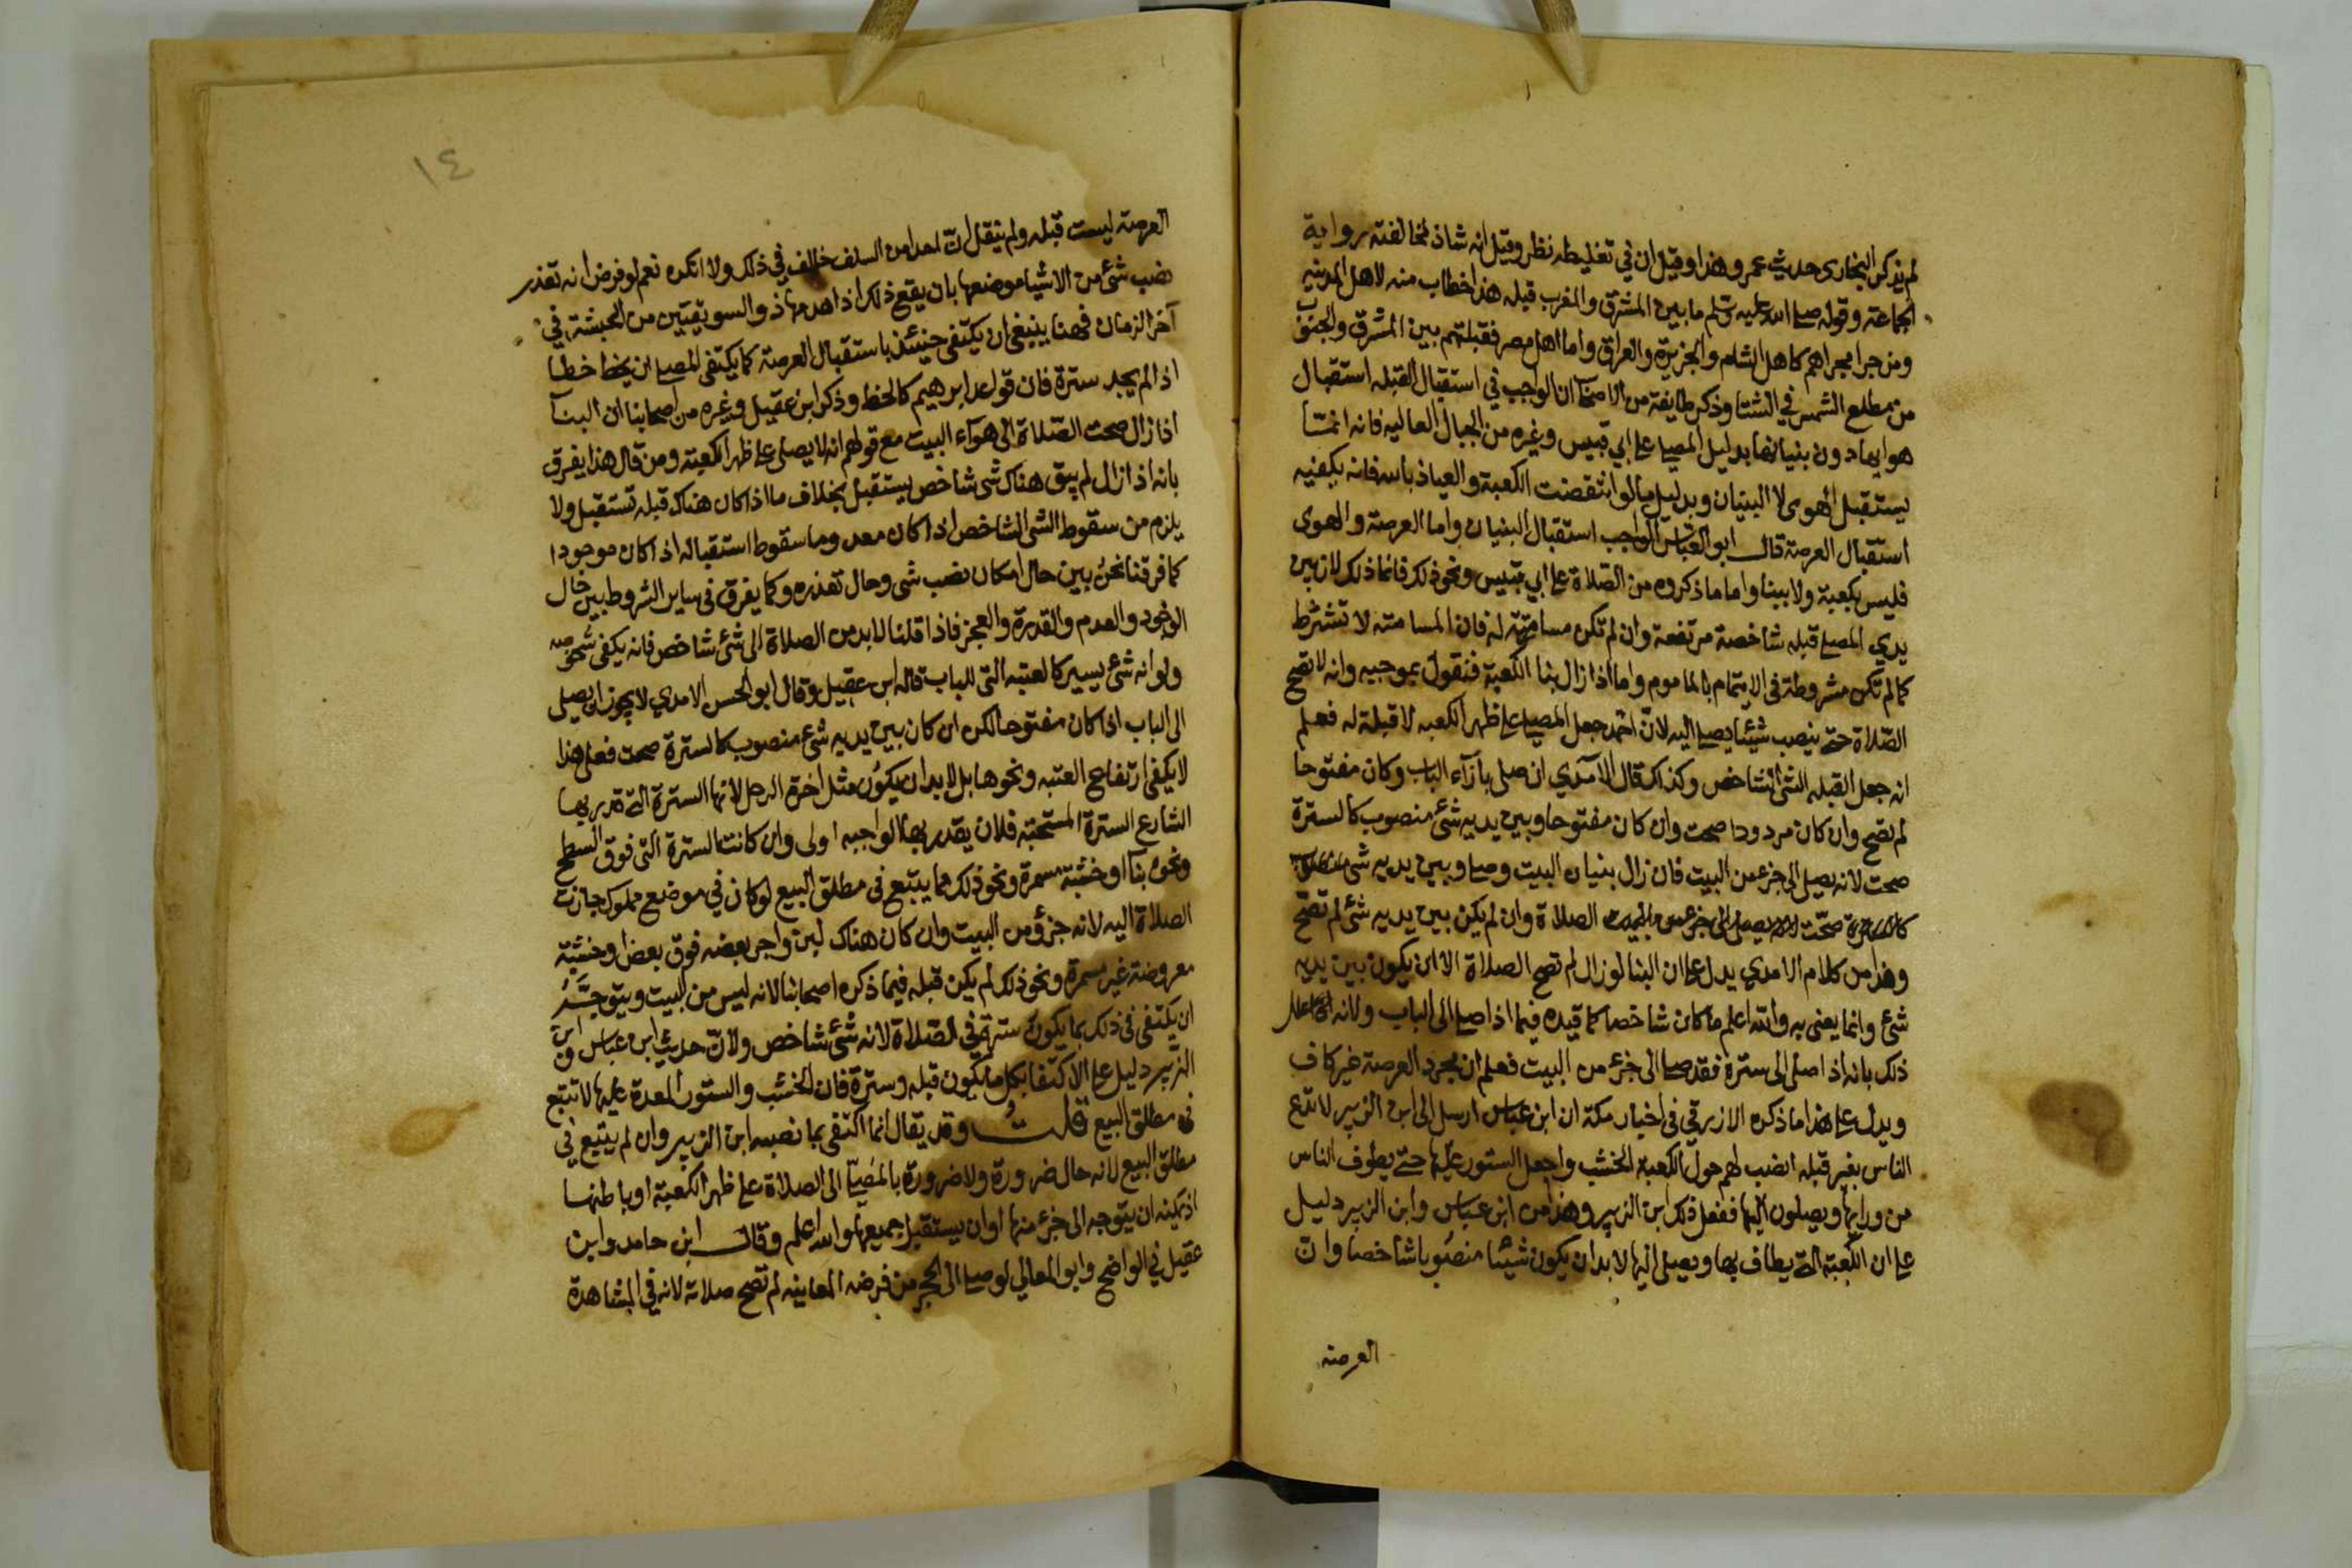 لم يذكر البخارى حديث عمر وهذا وقيل ان في تغليطه نظر وقيل انه شاذ لمخالفته رواية
الجماعة وقوله صلى الله عليه وسلم ما بين المشرق والمغرب قبله هذا خطاب منه لاهل المدينه
ومن جرا مجراهم كاهل الشام والجزيرة والعراق واما اهل مصر فقبلتهم بين المشرق والجنوب
من مطلع الشمس في الشتا وذكر طايفة من الاصحآ ان الواجب في استقبال القبله استقبال
هوايها دون بنيانها بدليل المصلي على ابي قبيس وغيره من الجبال العاليه فانه انمّا
يستقبل الهوى لا البنيان وبدليل ما لو انتقضت الكعبة والعياذ بالله فانه يكفيه
استقبال العرصة قال ابو العباس الواجب استقبال البنيان واما العرصة والهوى
فليس بكعبة ولا ببنا واما ما ذكروه من الصّلاة على ابي قبيس ونحو ذلك فانما ذلك لان بين
يدي المصلى قبله شاخصة مرتفعة وان لم تكن مسامتة له فان المسامتة لا تشترط
كما لم تكن مشروطة فى الايتمام بالماموم واما اذا زال بنا الكعبة فنقول بموجبه وانه لا تصح
الصّلاة حتى ينصب شيئا يصلى اليه لانّ احمد جعل المصلى على ظهر الكعبه لا قبلة له فعلم
انه جعل القبله الشئ الشاخص وكذلك قال الآمدي ان صلى بازآء الباب وكان مفتوحا
لم تصح وان كان مردودا صحت وان كان مفتوحا وبين يديه شئ منصوب كالسترة
صحت لانه يصلى الى جزء من البيت فان زال بنيان البيت وصلى وبين يديه شى
صحّت الصلاة وان لم يكن بين يديه شئ لم تصحّ
وهذا من كلام الامدي يدل على ان البنا لو زال لم تصح الصلاة الا ان يكون بين يديه
شئ وانما يعنى به والله اعلم ما كان شاخصا كما قيده فيما اذا صلى الى الباب ولانه علل
ذلك بانه اذا صلى الى سترة فقد صلى الى جزء من البيت فعلم ان مجرد العرصة غير كاف
ويدل على هذا ما ذكره الازرقي فى اخبار مكة ان ابن عباس ارسل الى ابن الزبير لا تدع
الناس بغير قبله انصب لهم حول الكعبة الخشب واجعل الستور عليها حتى يطوف الناس
من ورايها ويصلون اليها ففعل ذلك ابن الزبير وهذا من ابن عباس وابن الزبير دليل
على ان الكعبة التى يطاف بها ويصلى اليها لا بد ان يكون شيئا منصوبا شاخصا وانّ
العرصة
١٤
العرصة ليست قبله ولم ينقل انّ احدا من السلف خالف في ذلك ولا انكره نعم لو فرض انه تعذر
نصب شئ من الاشيا موضعها بان يقع ذلك اذا هدمها ذو السويقتين من الحبشة في
آخر الزمان فهنا ينبغي ان يكتفى حينئذ باستقبال العرصة كما يكتفى المصلى ان يخط خطا
اذا لم يجد سترة فان قواعد ابرهيم كالخط وذكر ابن عقيل وغيره من اصحابنا ان البنآ
اذا زال صحت الصّلاة الى هوآء البيت مع قولهم انه لا يصلى على ظهر الكعبة ومن قال هذا يفرق
بانه اذا زال لم يبق هناك شى شاخص يستقبل بخلاف ما اذا كان هناك قبله تستقبل ولا
يلزم من سقوط الشى الشاخص اذا كان معدوما سقوط استقباله اذا كان موجودا
كما فرقنا نحن بين حال امكان نصب شى وحال تعذره وكما يفرق فى ساير الشروط بين حال
الوجود والعدم والقدرة والعجز فاذا قلنا لا بد من الصلاة الى شئ شاخص فانه يكفى شخوصه
ولو انه شئ يسير كالعتبه التى للباب قاله ابن عقيل وقال ابو الحسن الامدي لا يجوز ان يصلى
الى الباب اذا كان مفتوحا لكن ان كان بين يديه شئ منصوب كالسترة صحت فعلى هذا
لا يكفى ارتفاع العتبه ونحوها بل لا بد ان يكون مثل اخرة الرحل لانها السترة التى قدر بها
الشارع السترة المستحبة فلان يقدر بها الواجبه اولى وان كانت السترة التى فوق السطح
ونحوه بنآ او خشبة مسمرة ونحو ذلك مما يتبع فى مطلق البيع لو كان في موضع مملوك جازت
الصلاة اليه لانه جزؤ من البيت وان كان هناك لبن واجر بعضه فوق بعض او خشبة
معروضة غير مسمرة ونحو ذلك لم يكن قبله فيما ذكره اصحابنا لانه ليس من البيت ويتوجّه
ان يكتفى فى ذلك بما يكون سترة في الصّلاة لانه شئ شاخص ولانّ حديث ابن عباس وابن
الزبير دليل على الاكتفا بكل ما يكون قبله وسترة فان الخشب والستور المعدة عليها لا تتبع
فى مطلق البيع قلت وقد يقال انما اكتفى بما نصبه ابن الزبير وان لم يتبع في
مطلق البيع لانه حال ضرورة ولا ضرورة بالمصلي الى الصلاة على ظهر الكعبة او باطنها
اذ يمكنه ان يتوجه الى جزء منها او ان يستقبل جميعها والله اعلم وقال ابن حامد وابن
عقيل في الواضح وابو المعالي لو صلى الى الحجر من فرضه المعاينه لم تصح صلاته لانه في المشاهدة